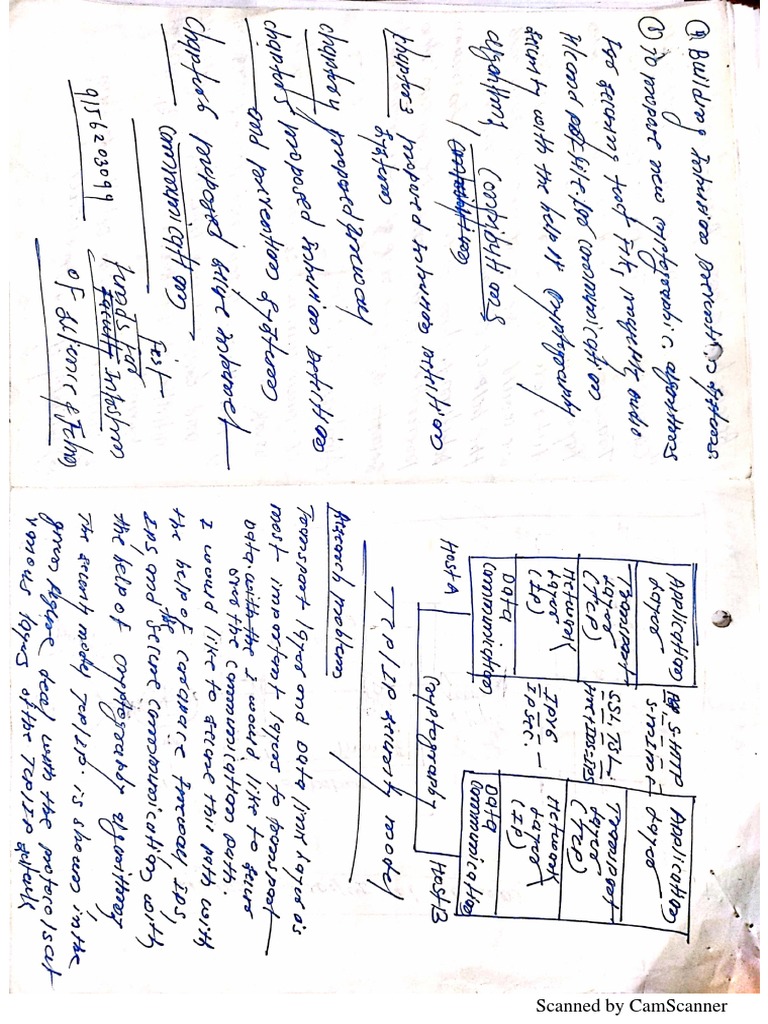 Building Intrusion Prevention System.
To prepare new cryptographic algorithms
for securing text File, image file, audio
file and pdf file for communication
security with the help of cryptography
algorithms
Conclusions
Chapter 3 proposed intrusion detection
System
Chapter 4 proposed Firewall
Chapter 5 proposed intrusion detection
and prevention System
Chapter 6 proposed secure internet
communication
9156203099
Test
of Sljanic System
Application
Layer
Transport
Layer
(TCP)
Network
Layer
(IP)
Data
Communication
Host A
SHTTP
S MIME
SSL, TSL,
IPV6
IPSec.
Application
Layer
Transport
Layer
(TCP)
Network
Layer
(IP)
Data
Communication
Host B
Cryptography
TCP/IP Security model
Research problem
Transport layer and Data link layer is
most important layer to transport
Data with the I would like to secure
and the communication path.
I would like to secure this path with
the help of Firewall, IDS,
IPS and the secure communication with
the help of cryptography algorithm
The security model TCP/IP. is shown in the
given figure deal with the protocols at
various layers of the TCP/IP
Scanned by CamScanner